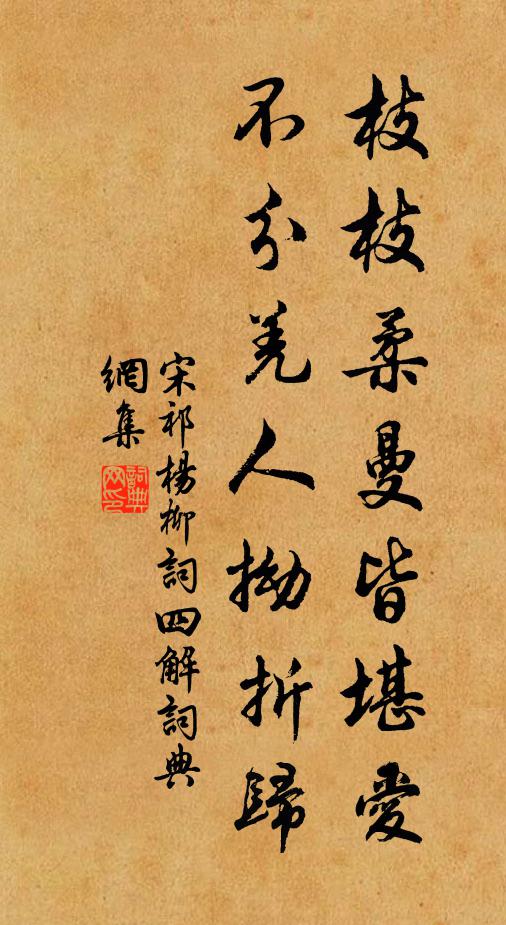 枝枝柔曼皆堪愛
不分羌人拗折歸
宋祁楊柳詞四解詞典
網集
詞典
网印